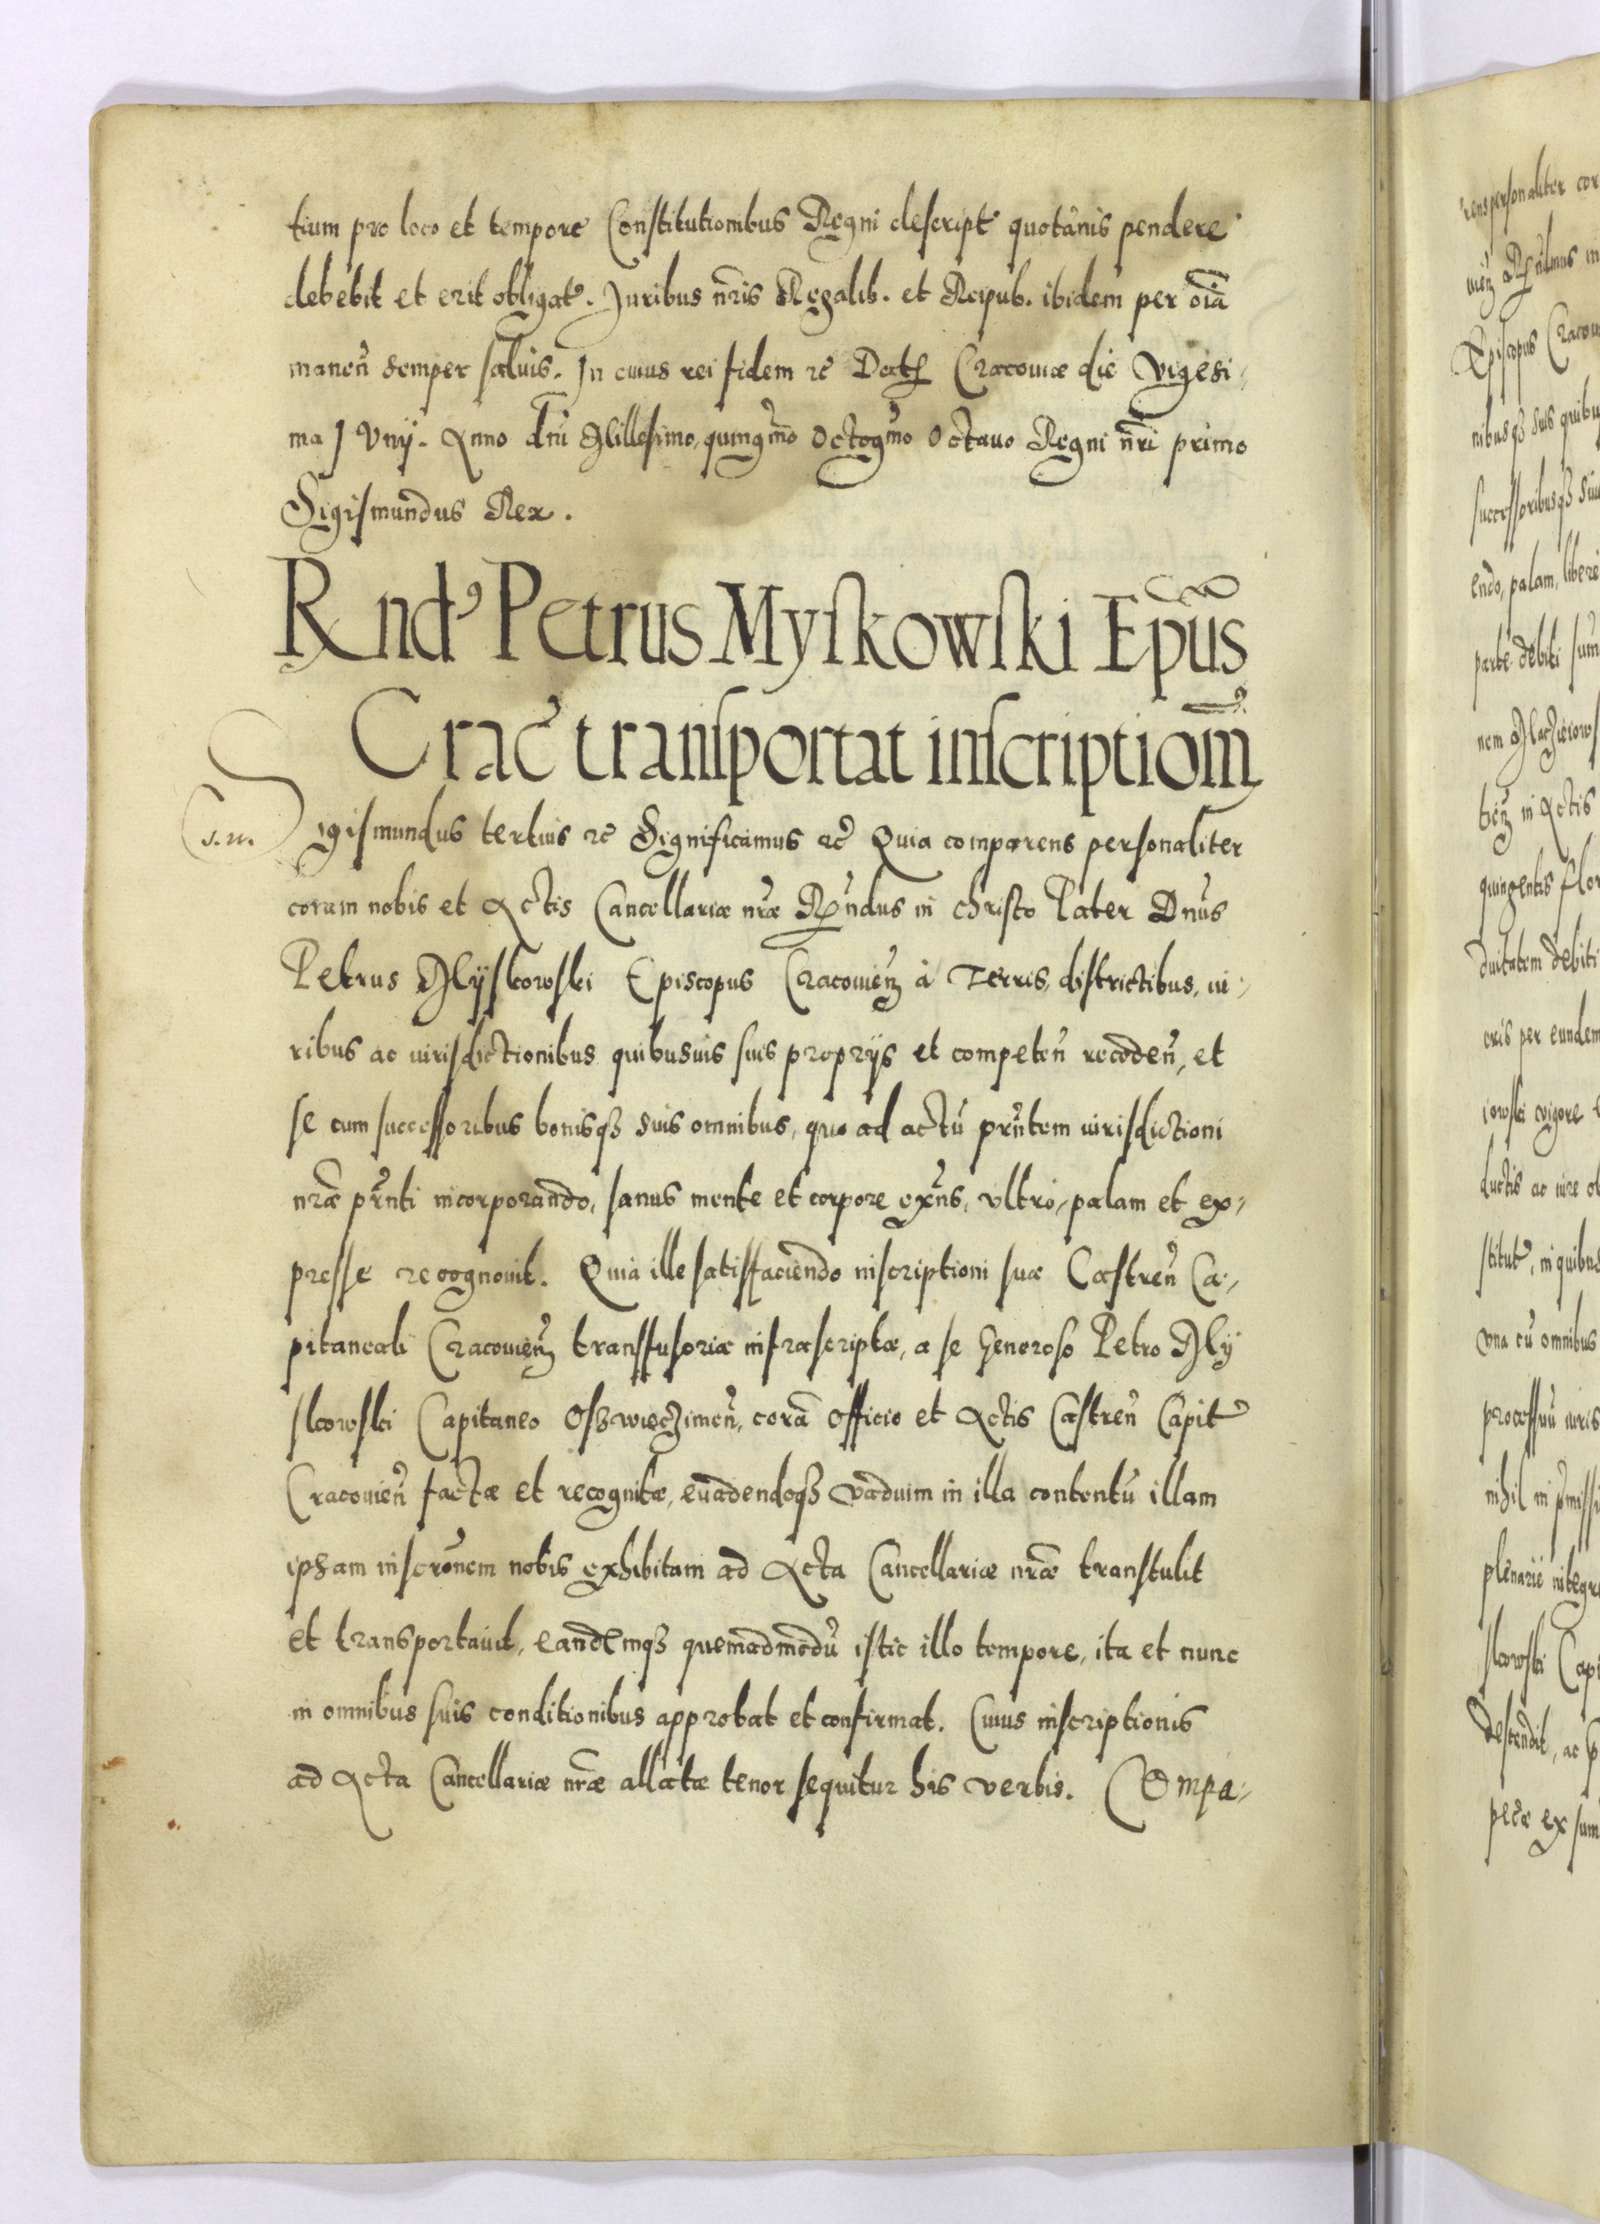 tium pro loco et tempore Constitutionibus Regni descript quotānis pendere
debebit et erit obligat. Juribus nr̄is Regalib. et Reipub. ibidem per oīa
maneñ semper saluis. In cuius rei fidem ec̄ Dat Cracouiæ die Vigesi-
ma Junÿ. Anno dnī Millesimo, quingmō Octogmō Octauo Regni nr̄i primo
Sigismundus Rex.
Rnd9 Petrus Myſkowſki Ep̄us
Crac̄ tranſportat inſcriptiom̄
s. m.
Sigismundus tertius ec̄ Significamus ec̄ Quia comparens personaliter
coram nobis et Actis Cancellariæ nræ Rn̄dus in Christo Pater Dn̄us
Petrus Mÿskowski Episcopus Cracouień à Terris, districtibus, iu-
ribus ac iurisdictionibus quibusuis suis proprÿs et competeñ recedeñ, et
se cum successoribus bonisq3 suis omnibus, quo ad actū pr̄ntem iurisdictioni
nræ pr̄nti incorporando, sanus mente et corpore exñs, vltro, palam et ex-
presse recognouit. Quia ille satisfaciendo inscriptioni suæ Castreñ Ca-
pitaneali Cracouień transfusoriæ infrascriptæ, a se Generoso Petro Mÿ
skowski Capitaneo Osswieczimeñ, corā Officio et Actis Castreñ Capit
Cracouień factæ et recognitæ, euadendoq3 vadium in illa contentū illam
ipsam inscrōnem nobis exhibitam ad Acta Cancellariæ nræ transtulit
et transportauit, eandemq3 quemadmodū istic illo tempore, ita et nunc
in omnibus suis conditionibus approbat et confirmat. Cuius inscriptionis
ad Acta Cancellariæ nræ allatæ tenor sequitur his verbis. Compa-
rens personaliter cor
Episcopus Cracou
nibusq3 suis quibu
successoribusq3 sui
endo, palam, libere
parte debiti sum
tień in Actis
quingentis flor
duitatem debiti
oris per eundem
iowski vigore
ductis ac iure ob
stitut, in quibus
vna cū omnibus
processuū iuris
nihil in pmissi
plenarie integre
skowski Capi
descendit, ac p
petæ ex sum